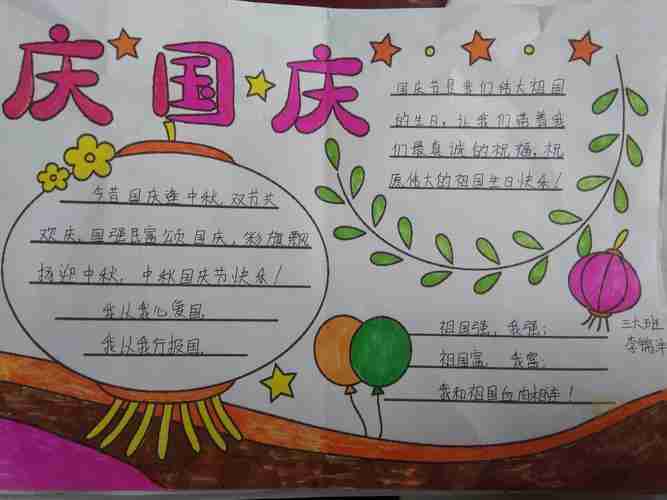 庆国庆
国庆节是我们伟大祖国
的生日，让我们带着我
们最真诚的祝福，祝
愿伟大的祖国生日快乐！
今昔国庆连中秋，双节共
欢庆，国强民富颂国庆，彩旗飘
扬迎中秋，中秋国庆节快乐！
我以我心爱国，
我以我行报国，
祖国强，我强；
祖国富，我富；
我和祖国血肉相连！
三六班
李锦